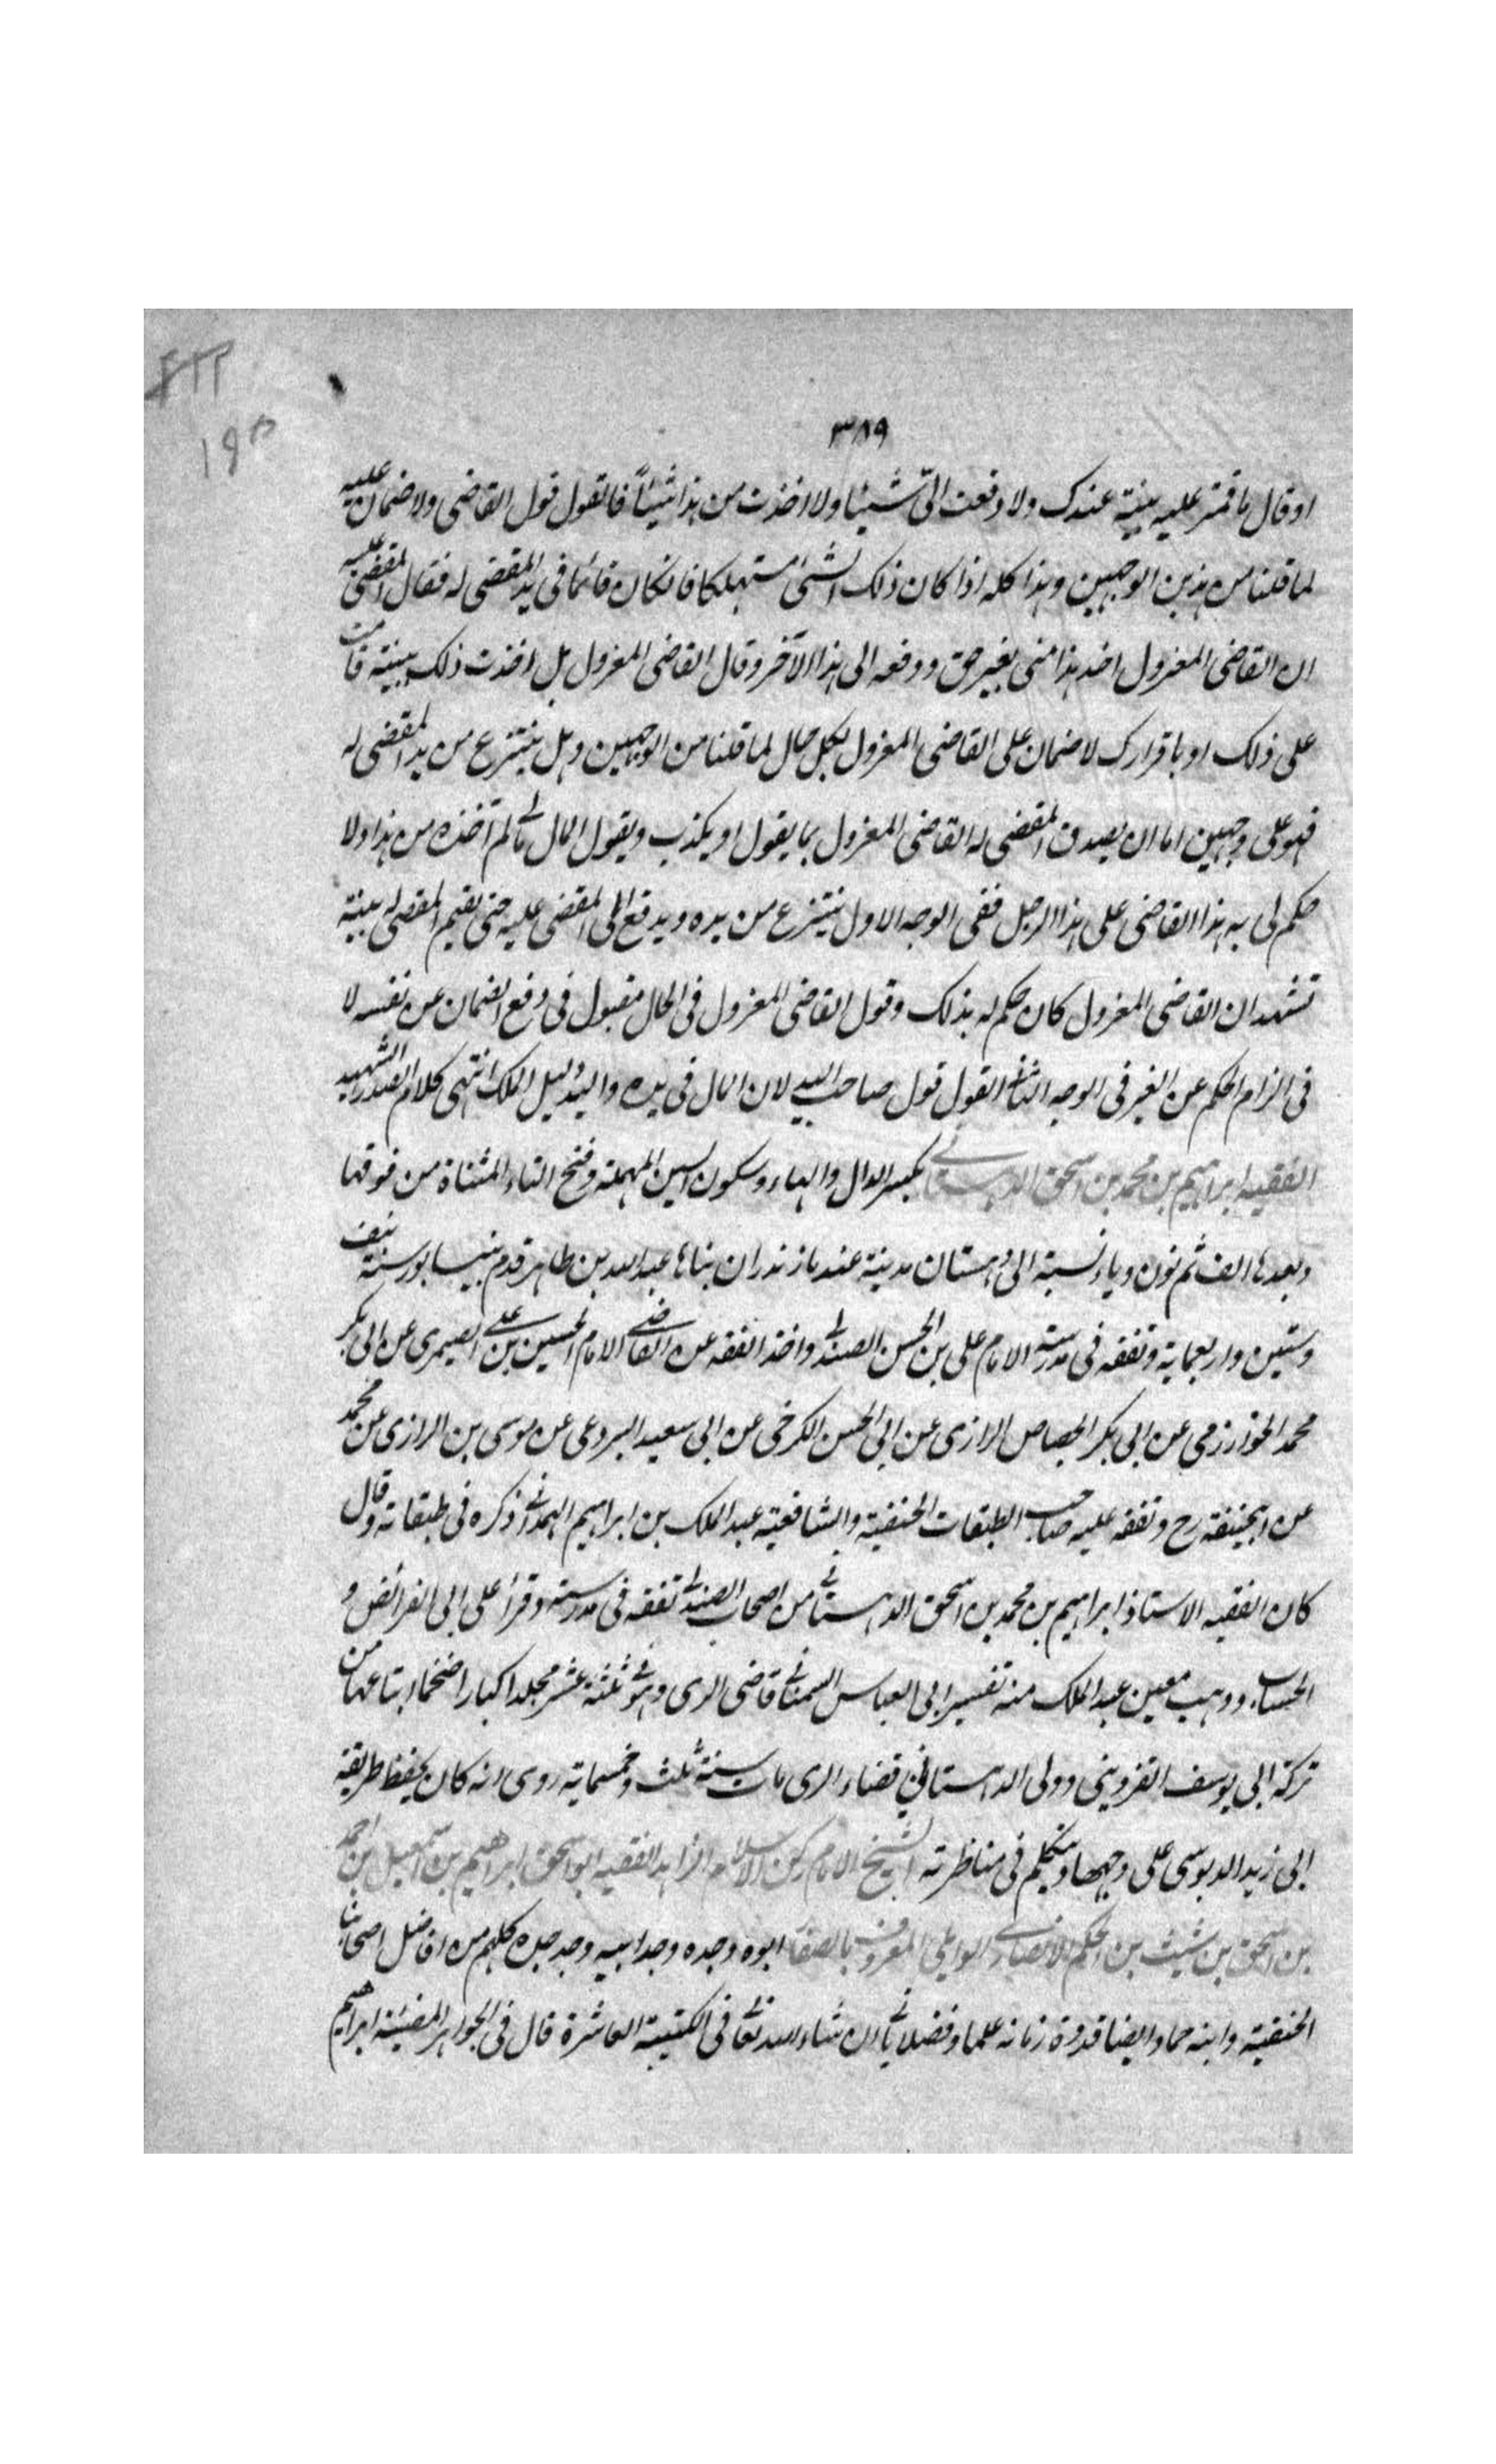 ٣٨٩
او قال ما قمت عليه ببينة عندك ولا دفعت الىّ شيئا ولا اخذت من هذا شيئاً فالقول قول القاضى ولا ضمان عليه
لما قلنا من هذين الوجهين وهذا كله اذا كان ذلك الشئ مستهلكا فانكان قائما فى يد المقضى له فقال المقضى عليه
ان القاضى المعزول اخذ هذا منى بغير حق ودفعه الى هذا الآخر وقال القاضى المعزول بل اخذت ذلك ببينة قامت
على ذلك او باقرارك لا ضمان على القاضى المعزول بكل حال لما قلنا من الوجهين وهل ينتزع من يد المقضى له
فهو على وجهين اما ان يصدق المقضى له القاضى المعزول بما يقول او يكذب ويقول المال مالى لم آخذه من هذا ولا
حكم لى به هذا القاضى على هذا الرجل ففى الوجه الاول ينتزع من يده ويدفع الى المقضى عليه حتى يقيم المقضى له بينة
تشهد ان القاضى المعزول كان حكم له بذلك وقول القاضى المعزول فى الحال مقبول فى دفع الضمان عن نفسه لا
فى الزام الحكم عن الغير فى الوجه الثانى القول قول صاحب اليد لان المال فى يده واليد دليل الملك انتهى كلام الصدر الشهيد
الفقيه ابراهيم بن محمد بن اسحق الدهستانى بكسر الدال والهاء وسكون السين المهملة وفتح التاء المثناة من فوقها
وبعدها الف ثم نون وياء نسبة الى دهستان مدينة عند مازندران بناها عبد الله بن طاهر قدم نيسابور سنة نيف
وستين واربعماية وتفقه فى مدرسة الامام على بن الحسن الصندلى واخذ الفقه عن القاضى الامام الحسين بن على الصيمرى عن ابى بكر
محمد الخوارزمى عن ابى بكر الجصاص الرازى عن ابى الحسن الكرخى عن ابى سعيد البردعى عن موسى بن الرازى عن محمد
عن ابيحنيفة رح وتفقه عليه صاحب الطبقات الحنفية والشافعية عبد الملك بن ابراهيم الهمدانى ذكره فى طبقاته وقال
كان الفقيه الاستاذ ابراهيم بن محمد بن اسحق الدهستانى من اصحاب الصندلى تفقه فى مدرسته وقرأ على ابى الفرائض و
الحساب ووهب معين عبد الملك منه تفسير ابى العباس السمنانى قاضى الرى وهو فى ثلثة عشر مجلدا كبارا ضخما ابتاعها من
تركة ابى يوسف القزوينى وولى الدهستانى قضاء الرى مات سنة ثلث وخمسماية روى انه كان يحفظ طريقة
ابى زيد الدبوسى على وجهها ويتكلم فى مناظرته الشيخ الامام ركن الاسلام الزاهد الفقيه ابو اسحق ابراهيم بن اسمعيل بن احمد
بن اسحق بن شيث بن الحكم الانصارى الوايلى المعروف بالصفار ابوه وجده وجد ابيه وجد جده كلهم من افاضل اصحابنا
الحنفية وابنه حماد ايضا قدوة زمانه علما وفضلا يأتى ان شاء الله تعالى فى الكتيبة العاشرة قال فى الجواهر المضيئة ابراهيم